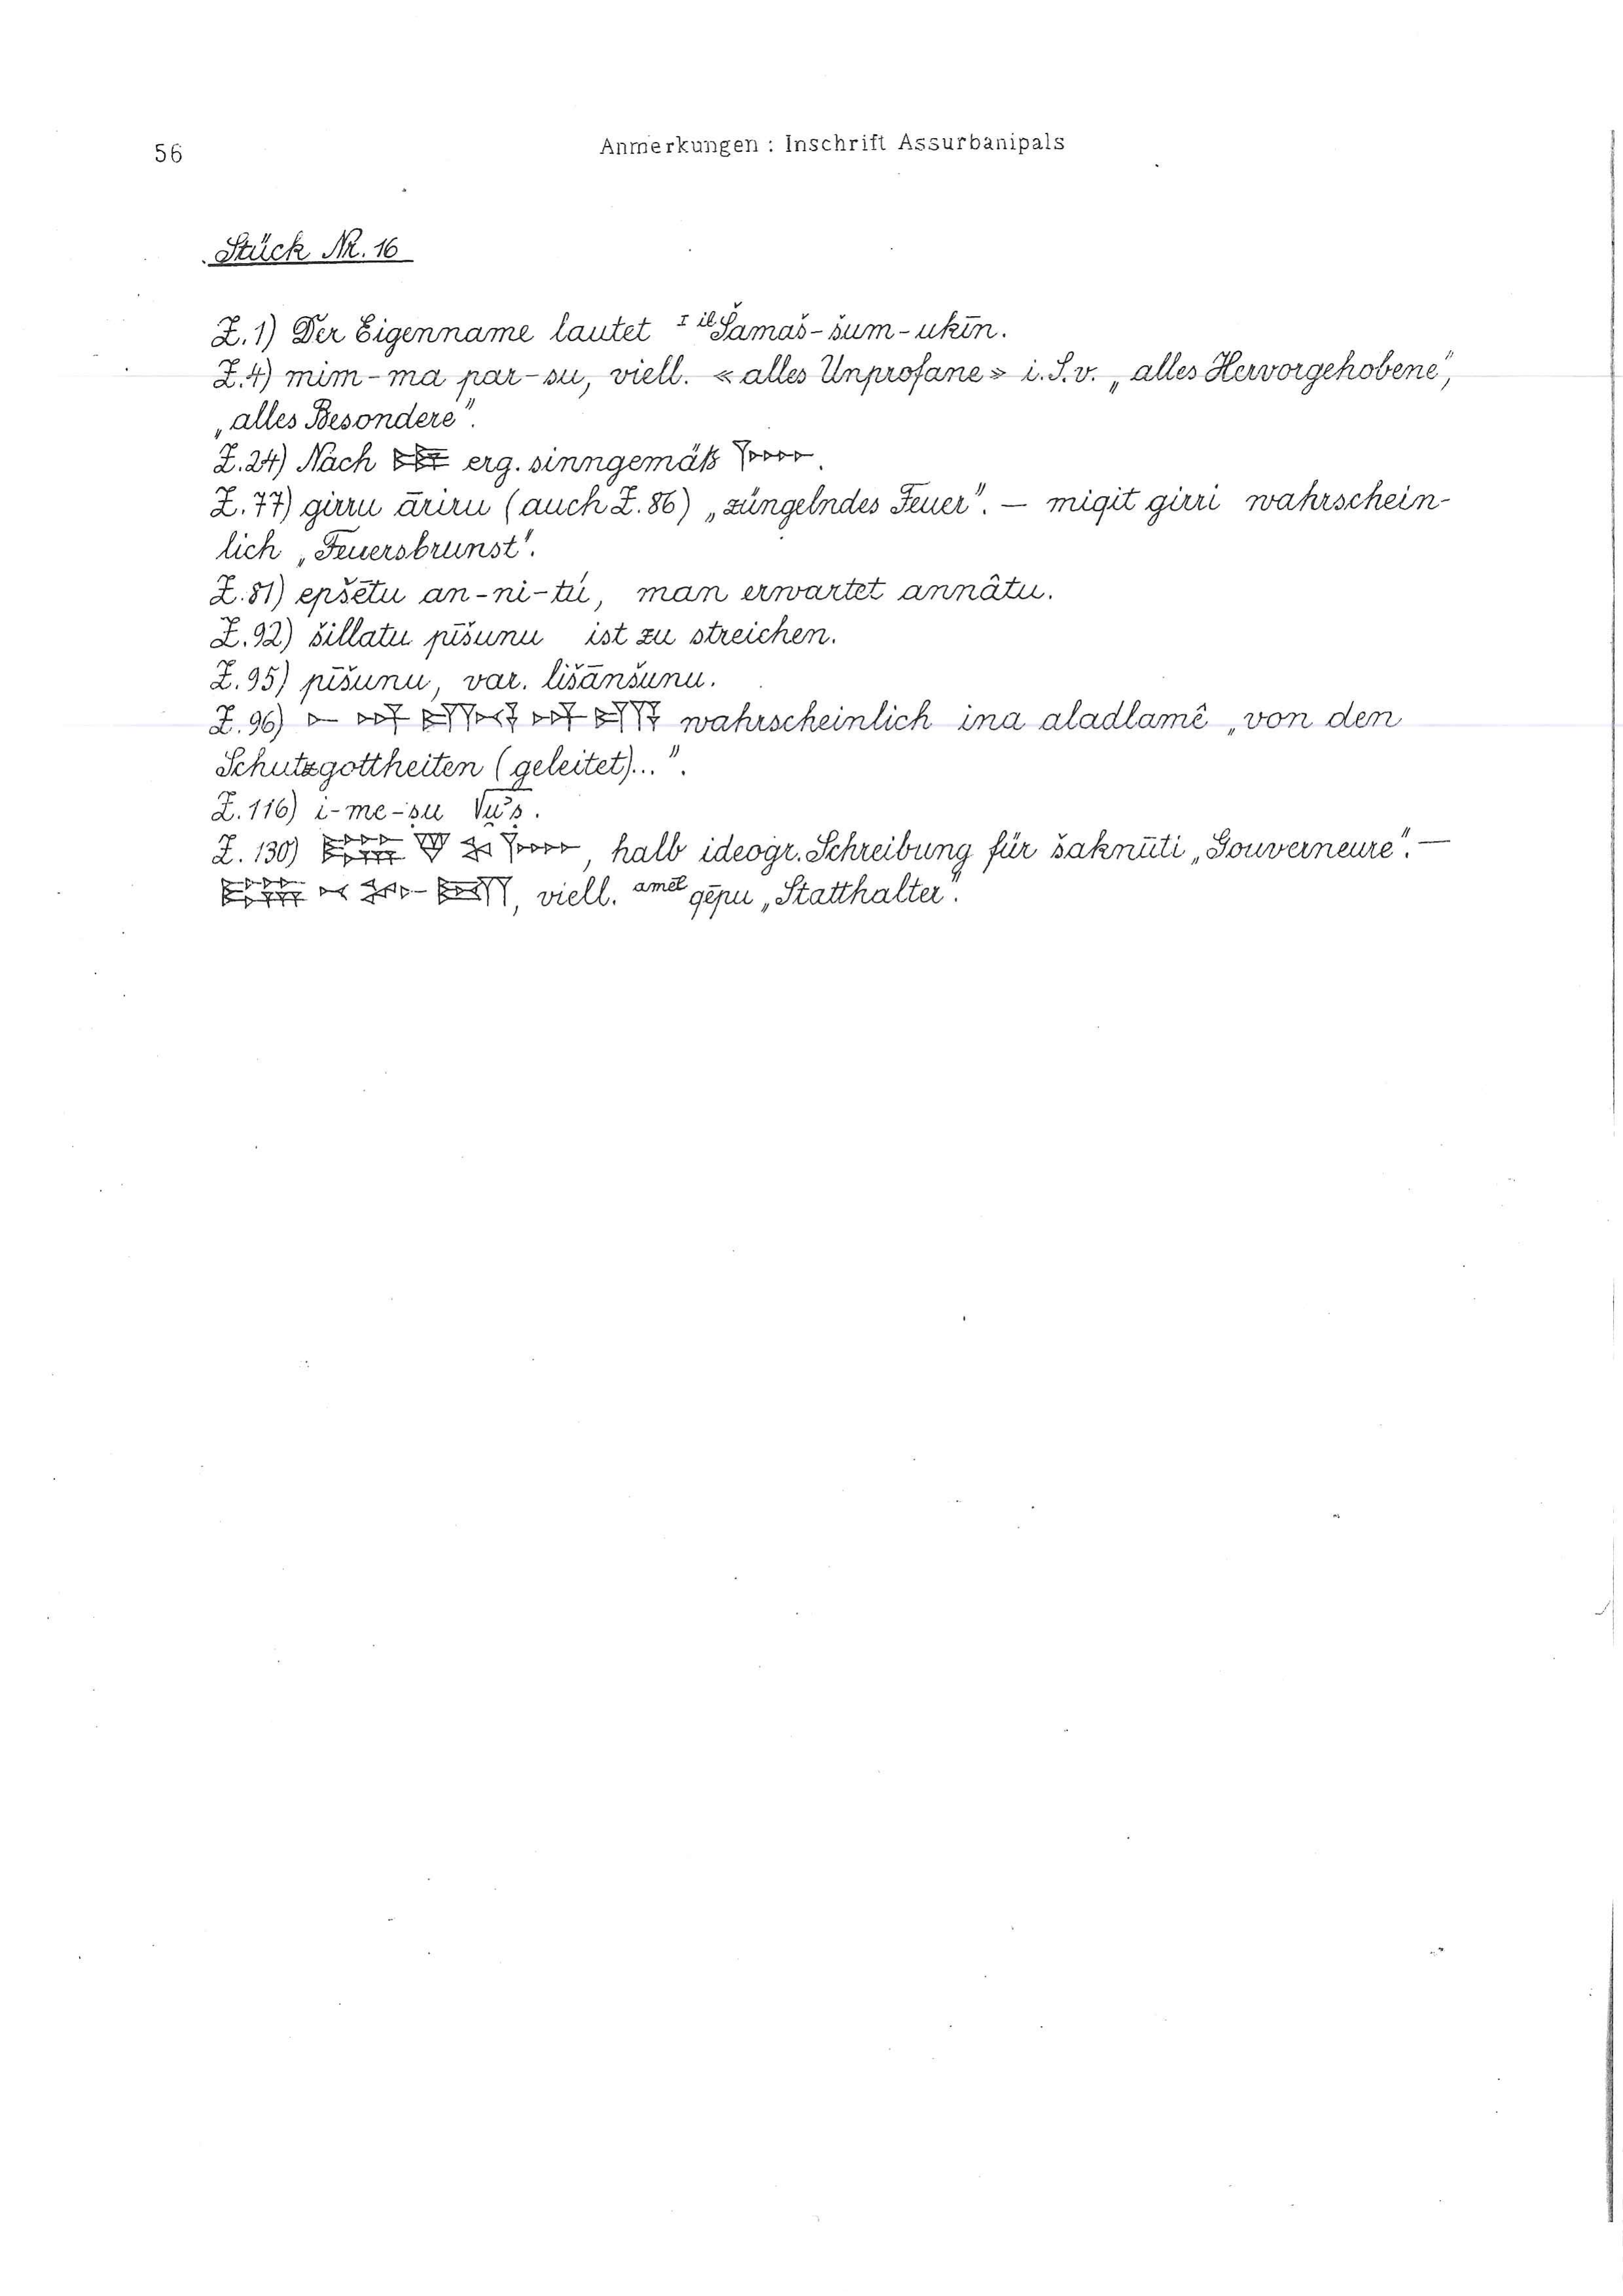 56
Anmerkungen : Inschrift Assurbanipals
Stück Nr. 16
Z. 1) Der Eigenname lautet ᴵ ⁱˡ Šamaš-šum-ukīn.
Z. 4) mim-ma par-su, viell. « alles Unprofane » i. S. v. „alles Hervorgehobene",
„alles Besondere".
Z. 24) Nach erg. sinngemäß
Z. 77) girru āriru (auch Z. 86) „züngelndes Feuer". — migit girri wahrschein-
lich „Feuersbrunst".
Z. 81) epšētu an-ni-tú, man erwartet annâtu.
Z. 92) šillatu pīšunu ist zu streichen.
Z. 95) pīšunu, var. lišānšunu.
Z. 96) wahrscheinlich ina aladlamê „von den
Schutzgottheiten (geleitet)...".
Z. 116) i-me-su
Z. 130) , halb ideogr. Schreibung für šaknūti „Gouverneure". —
, viell. ᵃᵐᵉˡ gēpu „Statthalter".